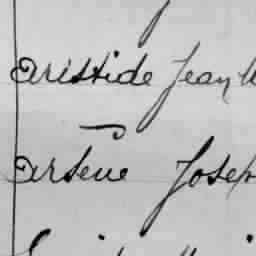 Aristide Jean
Arsène Josep